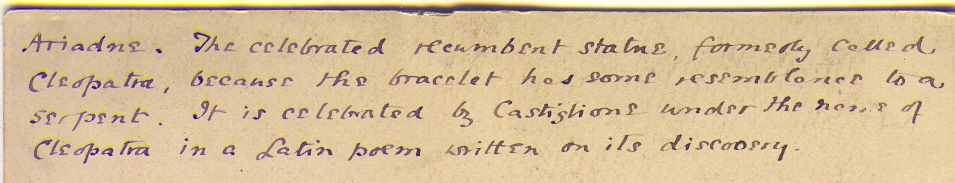 Ariadne. The celebrated recumbent statue, formerly called
Cleopatra, because the bracelet has some resemblance to a
serpent. It is celebrated by Castiglione under the name of
Cleopatra in a Latin poem written on its discovery.